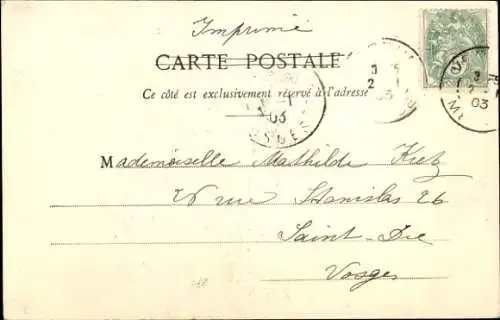 Imprimé
CARTE POSTALE
Ce côté est exclusivement réservé à l'adresse
03
03
Mademoiselle Mathilde
rue Stanislas 26
Saint-Dié
Vosges